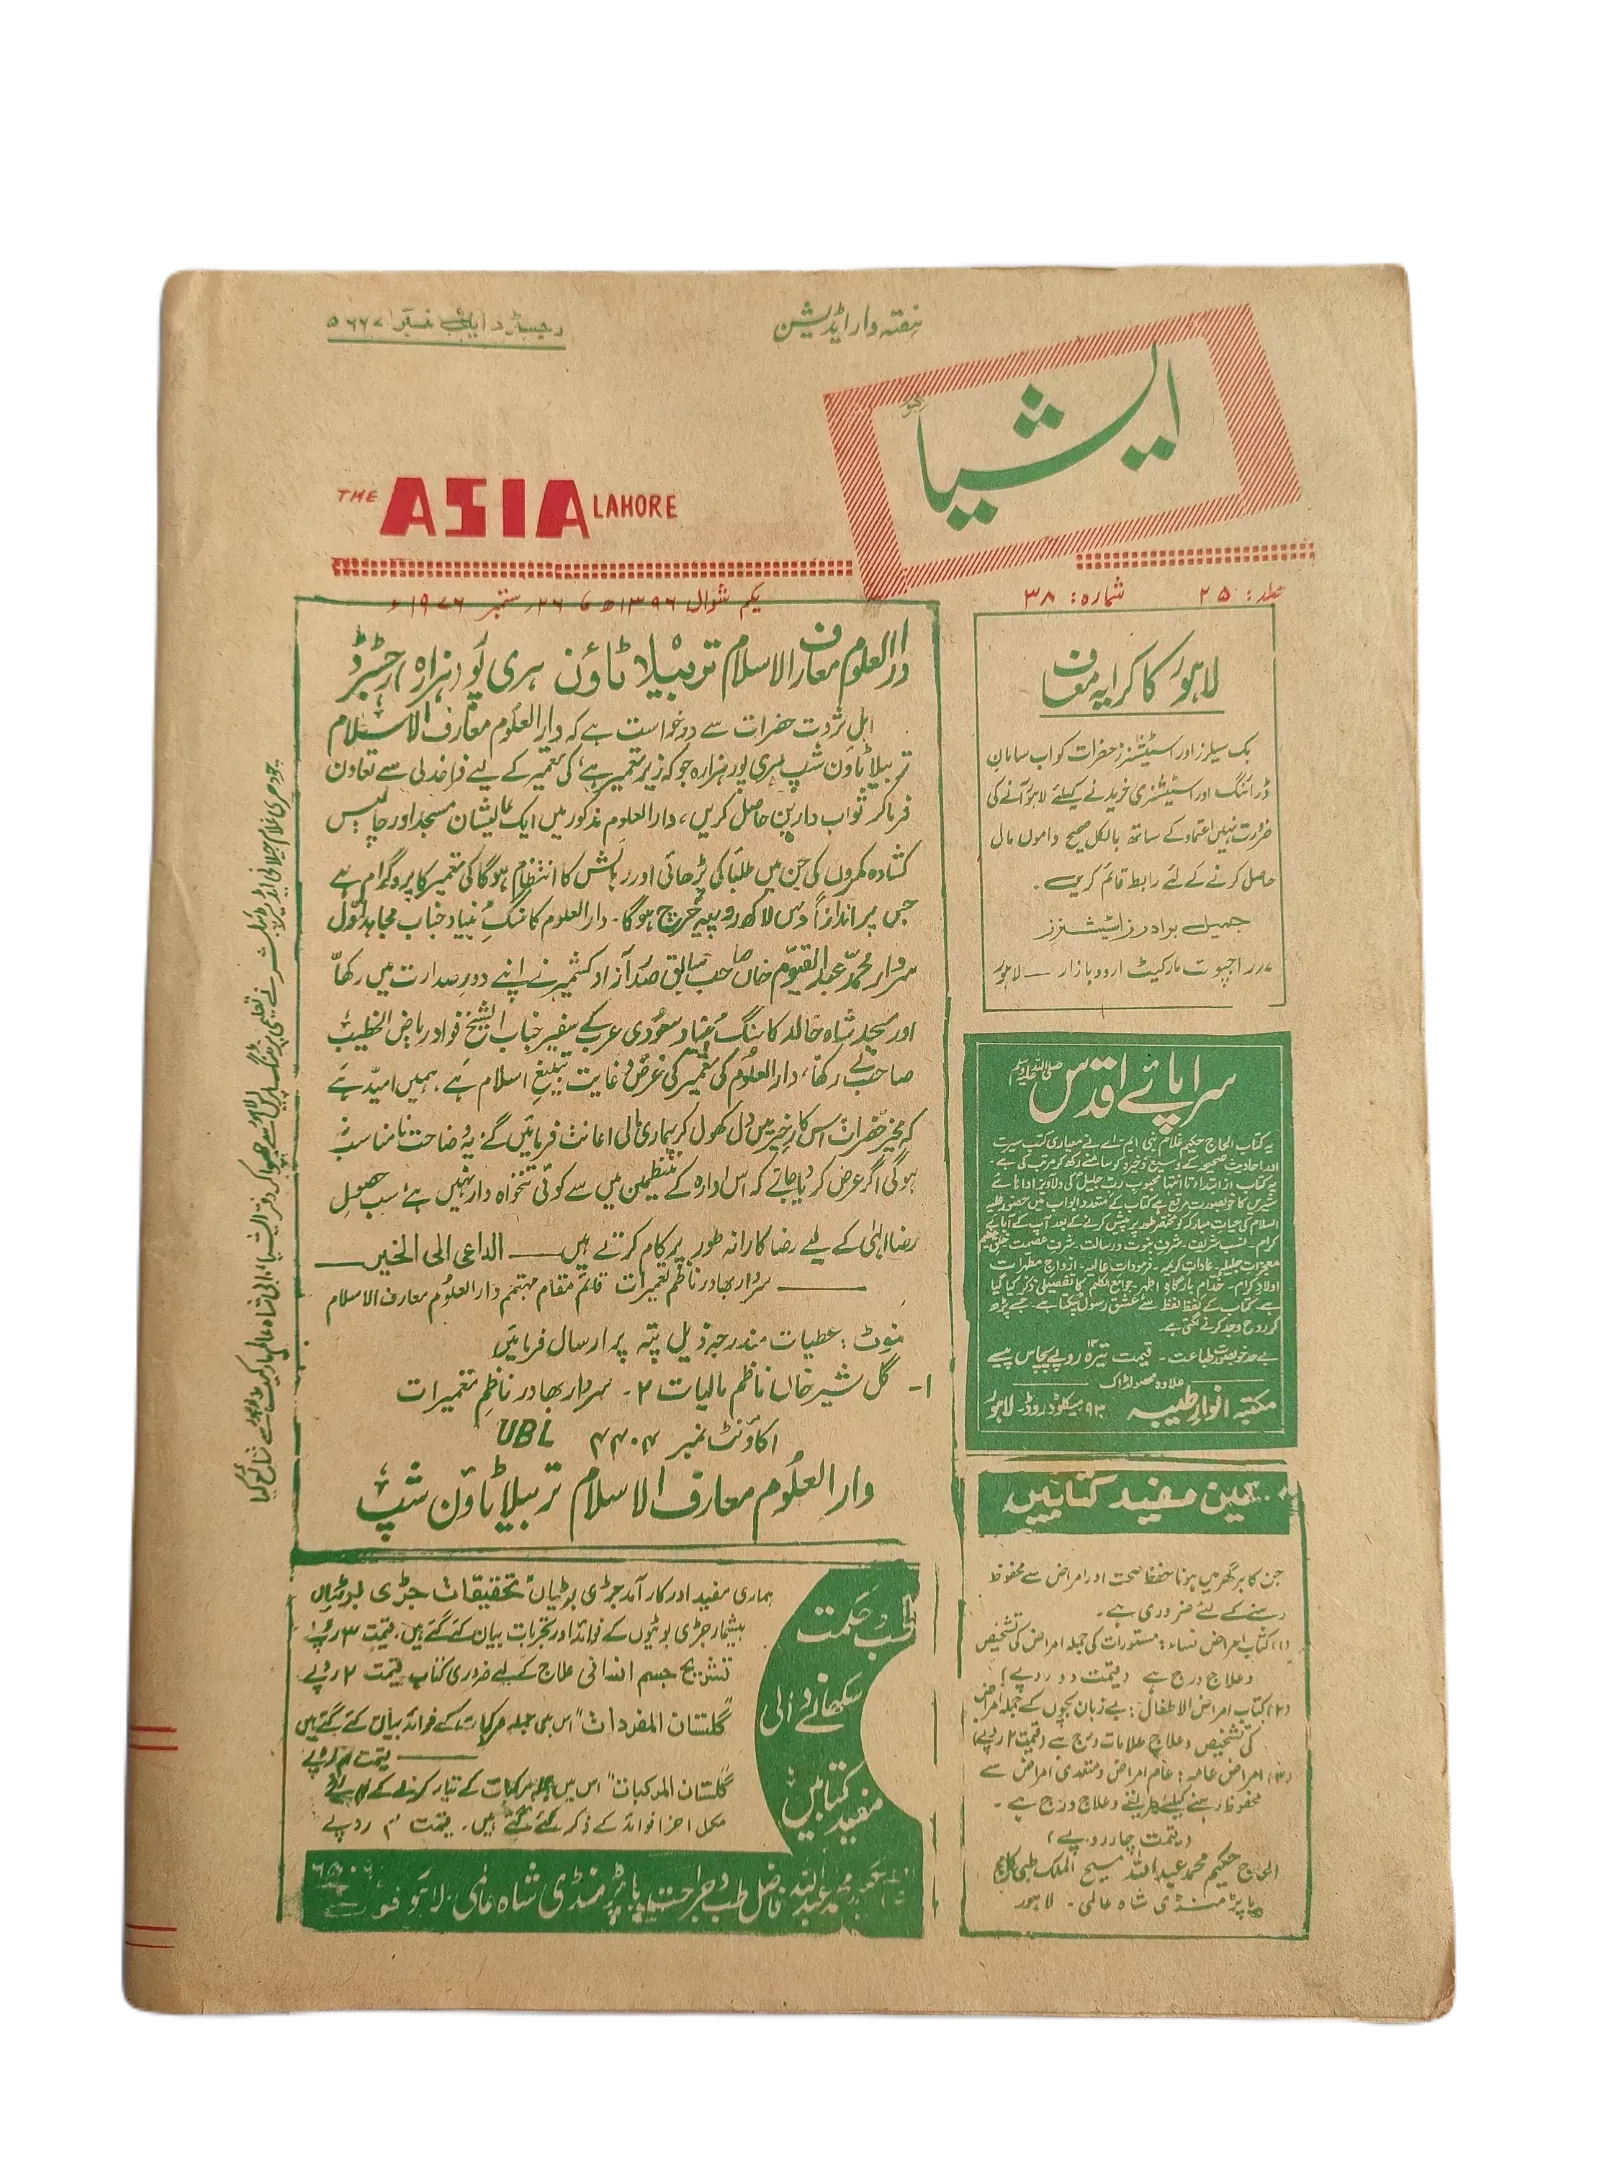 ہفتہ وار ایڈیشن
رجسٹرڈ ایل نمبر ۵۶۶۷
ایشیا
لاہور
THE ASIA LAHORE
جلد: ۲۵ شمارہ: ۳۸
یکم شوال ۱۳۹۶ھ ۲۶ ستمبر ۱۹۷۶ء
لاہور کا کرایہ معاف
بک سیلرز اور اسٹیشنرز حضرات کو اب سامان
ڈرائنگ اور اسٹیشنری خریدنے کیلئے لاہور آنے کی
ضرورت نہیں اعتماد کے ساتھ بالکل صحیح داموں مال
حاصل کرنے کے لئے رابطہ قائم کریں۔
جمیل برادرز اسٹیشنرز
راجپوت مارکیٹ اردو بازار — لاہور
سراپائے اقدس صلی اللہ علیہ وسلم
یہ کتاب الحاج حکیم غلام نبی ایم۔اے نے معیاری کتب سیرت
اور احادیث صحیحہ کے وسیع ذخیرہ کو سامنے رکھ کر مرتب کی ہے۔
یہ کتاب از ابتداء تا انتہا محبوب رب جلیل کی دلآویز اداہائے
شیریں کا خوبصورت مرقع ہے کتاب کے متعدد ابواب میں حضور علیہ
اسلام کی حیات مبارکہ کو مختصر طور پر پیش کرنے کے بعد آپ کے آبائے
کرام۔ نسب شریف۔ شرف نبوت و رسالت۔ شرف عصمت خلق عظیم
معجزات جلیلہ۔ عادات کریمہ۔ فرمودات عالیہ۔ ازواج مطہرات
اولاد کرام۔ خدام بارگاہ اطہر۔ جوامع الکلم کا تفصیلی ذکر کیا گیا
ہے کتاب کے لفظ لفظ سے عشق رسول ٹپکتا ہے۔ جسے پڑھ
کر روح وجد کرنے لگتی ہے۔
بے حد خوبصورت طباعت۔ قیمت تیرہ روپے پچاس پیسے
علاوہ محصولڈاک
مکتبہ انوار طیبہ ۹۳ میکلوڈ روڈ۔ لاہور
تین مفید کتابیں
جن کا ہر گھر میں ہونا حفظ صحت اور امراض سے محفوظ
رہنے کے لئے ضروری ہے۔
(۱) کتاب امراض نساء: مستورات کی جملہ امراض کی تشخیص
و علاج درج ہے (قیمت دو روپے)
(۲) کتاب امراض الاطفال: بے زبان بچوں کے جملہ امراض
کی تشخیص و علاج علامات درج ہے (قیمت ۲ روپے)
(۳) امراض عامہ: عام امراض و متعدی امراض سے
محفوظ رہنے کیلئے و علاج درج ہے۔
(قیمت چار روپے)
الحاج حکیم محمد عبداللہ مسیح الملک طبی کالج
پاپڑ منڈی شاہ عالمی۔ لاہور
دار العلوم معارف الاسلام تربیلا ٹاؤن ہری پور (ہزارہ) رجسٹرڈ
اہل ثروت حضرات سے درخواست ہے کہ دار العلوم معارف الاسلام
تربیلا ٹاؤن شپ ہری پور ہزارہ جو کہ زیر تعمیر ہے کی تعمیر کے لیے فراخدلی سے تعاون
فرما کر ثواب دارین حاصل کریں، دار العلوم مذکور میں ایک عالیشان مسجد اور چالیس
کشادہ کمروں کی جن میں طلباء کی پڑھائی اور رہائش کا انتظام ہوگا کی تعمیر کا پروگرام ہے
جس پر اندازاً دس لاکھ روپیہ خرچ ہوگا۔ دار العلوم کا سنگ بنیاد جناب مجاہد اول
سردار محمد عبدالقیوم خاں صاحب سابق صدر آزاد کشمیر نے اپنے دور صدارت میں رکھا
اور مسجد شاہ خالد کا سنگ بنیاد سعودی عرب کے سفیر جناب الشیخ فواد ریاض الخطیب
صاحب نے رکھا، دار العلوم کی تعمیر کی غرض و غایت تبلیغ اسلام ہے، ہمیں امید ہے
کہ مخیر حضرات اس کار خیر میں دل کھول کر ہماری مالی اعانت فرمائیں گے یہ وضاحت نامناسب نہ
ہوگی اگر عرض کر دیا جائے کہ اس ادارہ کے منتظمین میں سے کوئی تنخواہ دار نہیں ہے سب حصول
رضا الہٰی کے لیے رضاکارانہ طور پر کام کرتے ہیں — الداعی الی الخیر —
سردار بہادر ناظم تعمیرات قائم مقام مہتمم دار العلوم معارف الاسلام
نوٹ: عطیات مندرجہ ذیل پتہ پر ارسال فرمائیں
۱- گل شیر خاں ناظم مالیات ۲- سردار بہادر ناظم تعمیرات
اکاؤنٹ نمبر ۴۴۰۴ UBL
دار العلوم معارف الاسلام تربیلا ٹاؤن شپ
طب و حکمت
سکھانے والی
مفید کتابیں
ہماری مفید اور کارآمد جڑی بوٹیاں "تحقیقات جڑی بوٹیاں
بیشمار جڑی بوٹیوں کے فوائد اور تجربات بیان کئے گئے ہیں۔ قیمت ۳ روپے
تشریح جسم انسانی علاج کے لیے ضروری کتاب قیمت ۲ روپے
"گلستان المفردات" اس میں جملہ مرکبات کے فوائد بیان کئے گئے ہیں
قیمت ۴ روپے
"گلستان المرکبات" اس میں جملہ مرکبات کے تیار کرنے کے
مکمل اجزا فوائد کے ذکر کئے گئے ہیں۔ قیمت ۴ روپے
حکیم محمد عبداللہ فاضل طب و جراحت پاپڑ منڈی شاہ عالمی۔ لاہور فون
چودھری غلام جیلانی ایڈیٹر و پبلشر نے تعلیمی پرنٹنگ پریس لاہور سے چھپوا کر دفتر ایشیا، شاہ عالم مارکیٹ لاہور سے شائع کیا